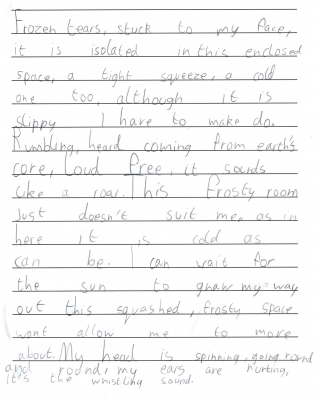 Frozen tears, stuck to my face,
it is isolated in this enclosed
space, a tight squeeze, a cold
one too, although it is
slippy I have to make do.
Rumbling, heard coming from earth's
core, loud free, it sounds
like a roar. This frosty room
just doesn't suit me, as in
here it is cold as
can be. I can wait for
the sun to gnaw my way
out this squashed, frosty space
wont allow me to move
about. My head is spinning, going round
and round, my ears are hurting,
it's the whistling sound.